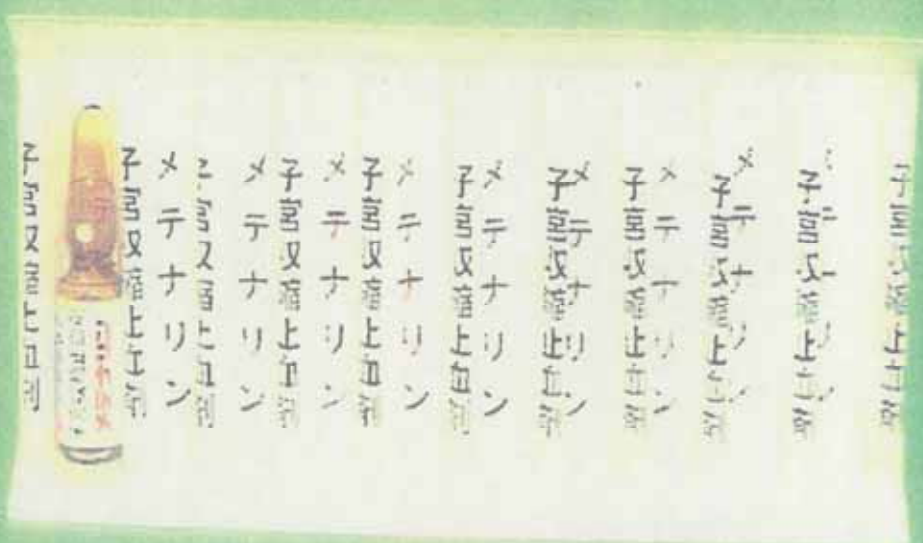 子宮収縮止血剤
メテナリン
子宮収縮止血剤
メテナリン
子宮収縮止血剤
メテナリン
子宮収縮止血剤
メテナリン
子宮収縮止血剤
メテナリン
子宮収縮止血剤
メテナリン
子宮収縮止血剤
メテナリン
子宮収縮止血剤
メテナリン
子宮収縮止血剤
メテナリン
子宮収縮止血剤
子宮収縮止血剤